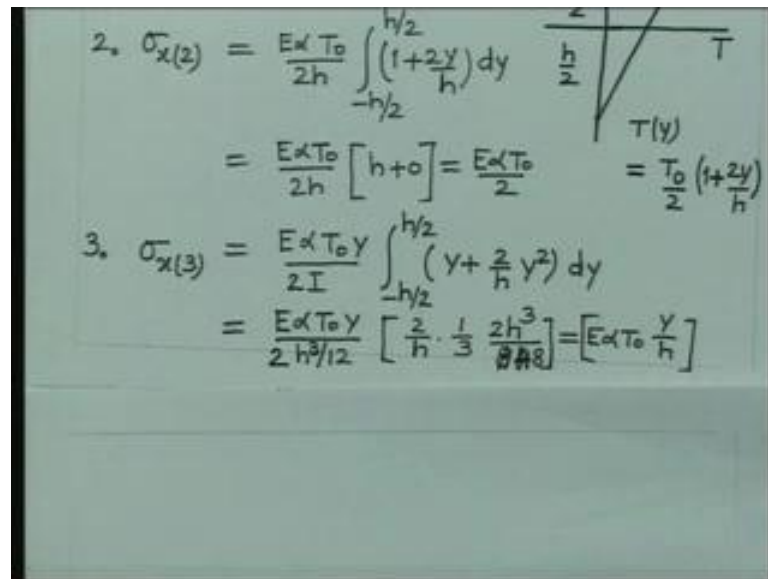 2. σx(2) = EαT₀/2h ∫_{-h/2}^{h/2} (1+2y/h) dy
h/2
T
= EαT₀/2h [h+0] = EαT₀/2
T(y)
= T₀/2 (1+2y/h)
3. σx(3) = EαT₀y/2I ∫_{-h/2}^{h/2} (y + 2/h y²) dy
= EαT₀y/2h³/12 [2/h · 1/3 2h³/8] = [EαT₀ y/h]